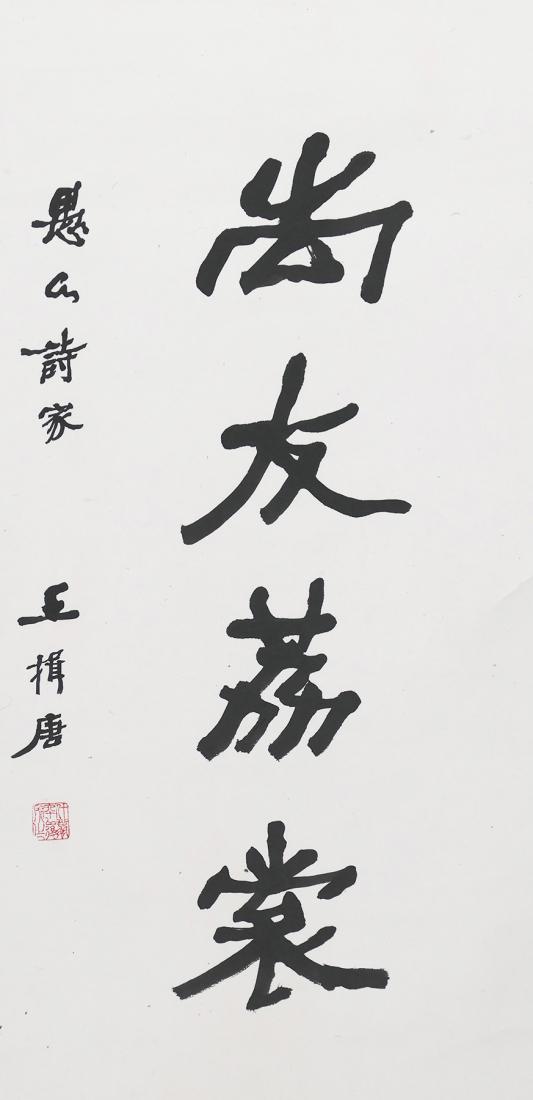 尚友荔裳
愚公詩家
王揖唐